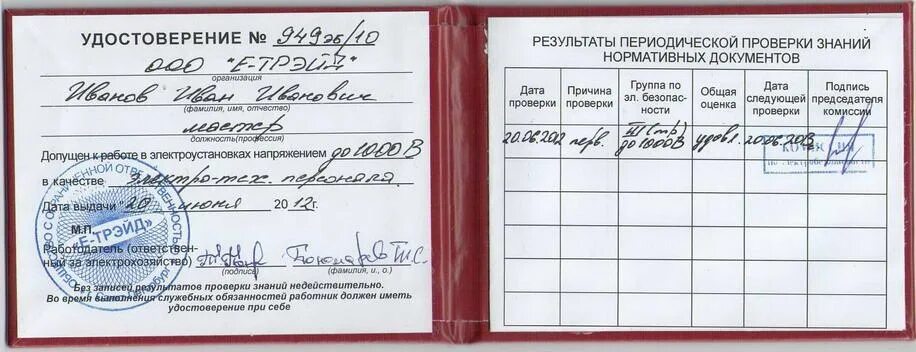 УДОСТОВЕРЕНИЕ № 949эб/10
ООО "Е-ТРЭЙД"
организация
Иванов Иван Иванович
(фамилия, имя, отчество)
мастер
должность(профессия)
Допущен к работе в электроустановках напряжением до 1000 В
в качестве электро-тех. персонала.
Дата выдачи "20" июня 2012г.
М.П.
Работодатель (ответствен-
ный за электрохозяйство)
(подпись) (фамилия, и., о.)
Без записей результатов проверки знаний недействительно.
Во время выполнения служебных обязанностей работник должен иметь
удостоверение при себе
"Е-ТРЭЙД"
РЕЗУЛЬТАТЫ ПЕРИОДИЧЕСКОЙ ПРОВЕРКИ ЗНАНИЙ
НОРМАТИВНЫХ ДОКУМЕНТОВ
Дата проверки
Причина проверки
Группа по эл. безопас-
ности
Общая оценка
Дата следующей проверки
Подпись председателя комиссии
20.06.2012 перв. III (тр) до 1000В удовл. 20.06.2013
КОМИССИЯ
по электробезопасности